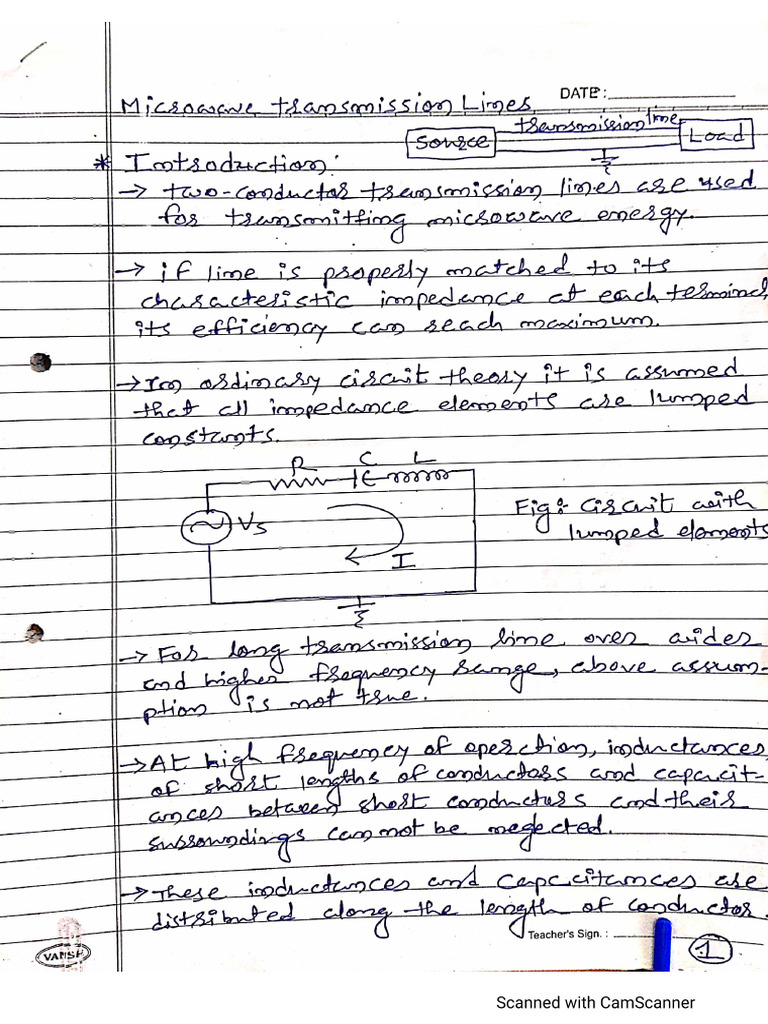 DATE:
Microwave transmission Lines
Source transmission line Load
* Introduction:
→ two-conductor transmission lines are used
for transmitting microwave energy.
→ if line is properly matched to its
characteristic impedance at each terminal,
its efficiency can reach maximum.
→ In ordinary circuit theory it is assumed
that all impedance elements are lumped
constants.
R C L
Vs
I
Fig: Circuit with
lumped elements
→ For long transmission line over wider
and higher frequency range, above assum-
ption is not true.
→ At high frequency of operation, inductances,
of short lengths of conductors and capacit-
ances between short conductors and their
surroundings can not be neglected.
→ These inductances and capacitances are
distributed along the length of conductor.
Teacher's Sign. :
1
VANSH
Scanned with CamScanner